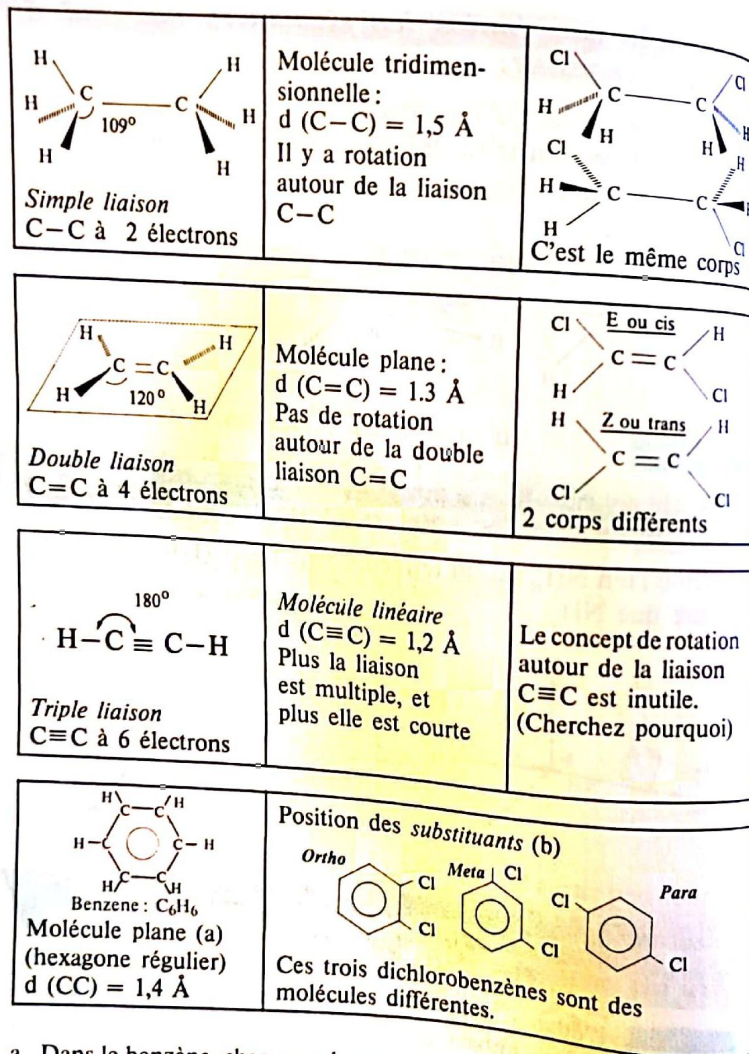 H H
H C C H
109°
H H
Simple liaison
C−C à 2 électrons
Molécule tridimen-
sionnelle :
d (C−C) = 1,5 Å
Il y a rotation
autour de la liaison
C−C
Cl Cl
H C C H
H H
Cl H
H C C
H Cl
C'est le même corps
H H
C=C
H 120° H
Double liaison
C≡C à 4 électrons
Molécule plane :
d (C=C) = 1.3 Å
Pas de rotation
autour de la double
liaison C=C
E ou cis
Cl H
C=C
H Cl
Z ou trans
H H
C=C
Cl Cl
2 corps différents
180°
H−C≡C−H
Triple liaison
C≡C à 6 électrons
Molécule linéaire
d (C≡C) = 1,2 Å
Plus la liaison
est multiple, et
plus elle est courte
Le concept de rotation
autour de la liaison
C≡C est inutile.
(Cherchez pourquoi)
H H
C−C
H−C C−H
C−C
H H
Benzene : C₆H₆
Molécule plane (a)
(hexagone régulier)
d (CC) = 1,4 Å
Position des substituants (b)
Ortho
Cl
Cl
Meta Cl
Cl
Para
Cl
Cl
Ces trois dichlorobenzènes sont des
molécules différentes.
a. Dans le benzène,